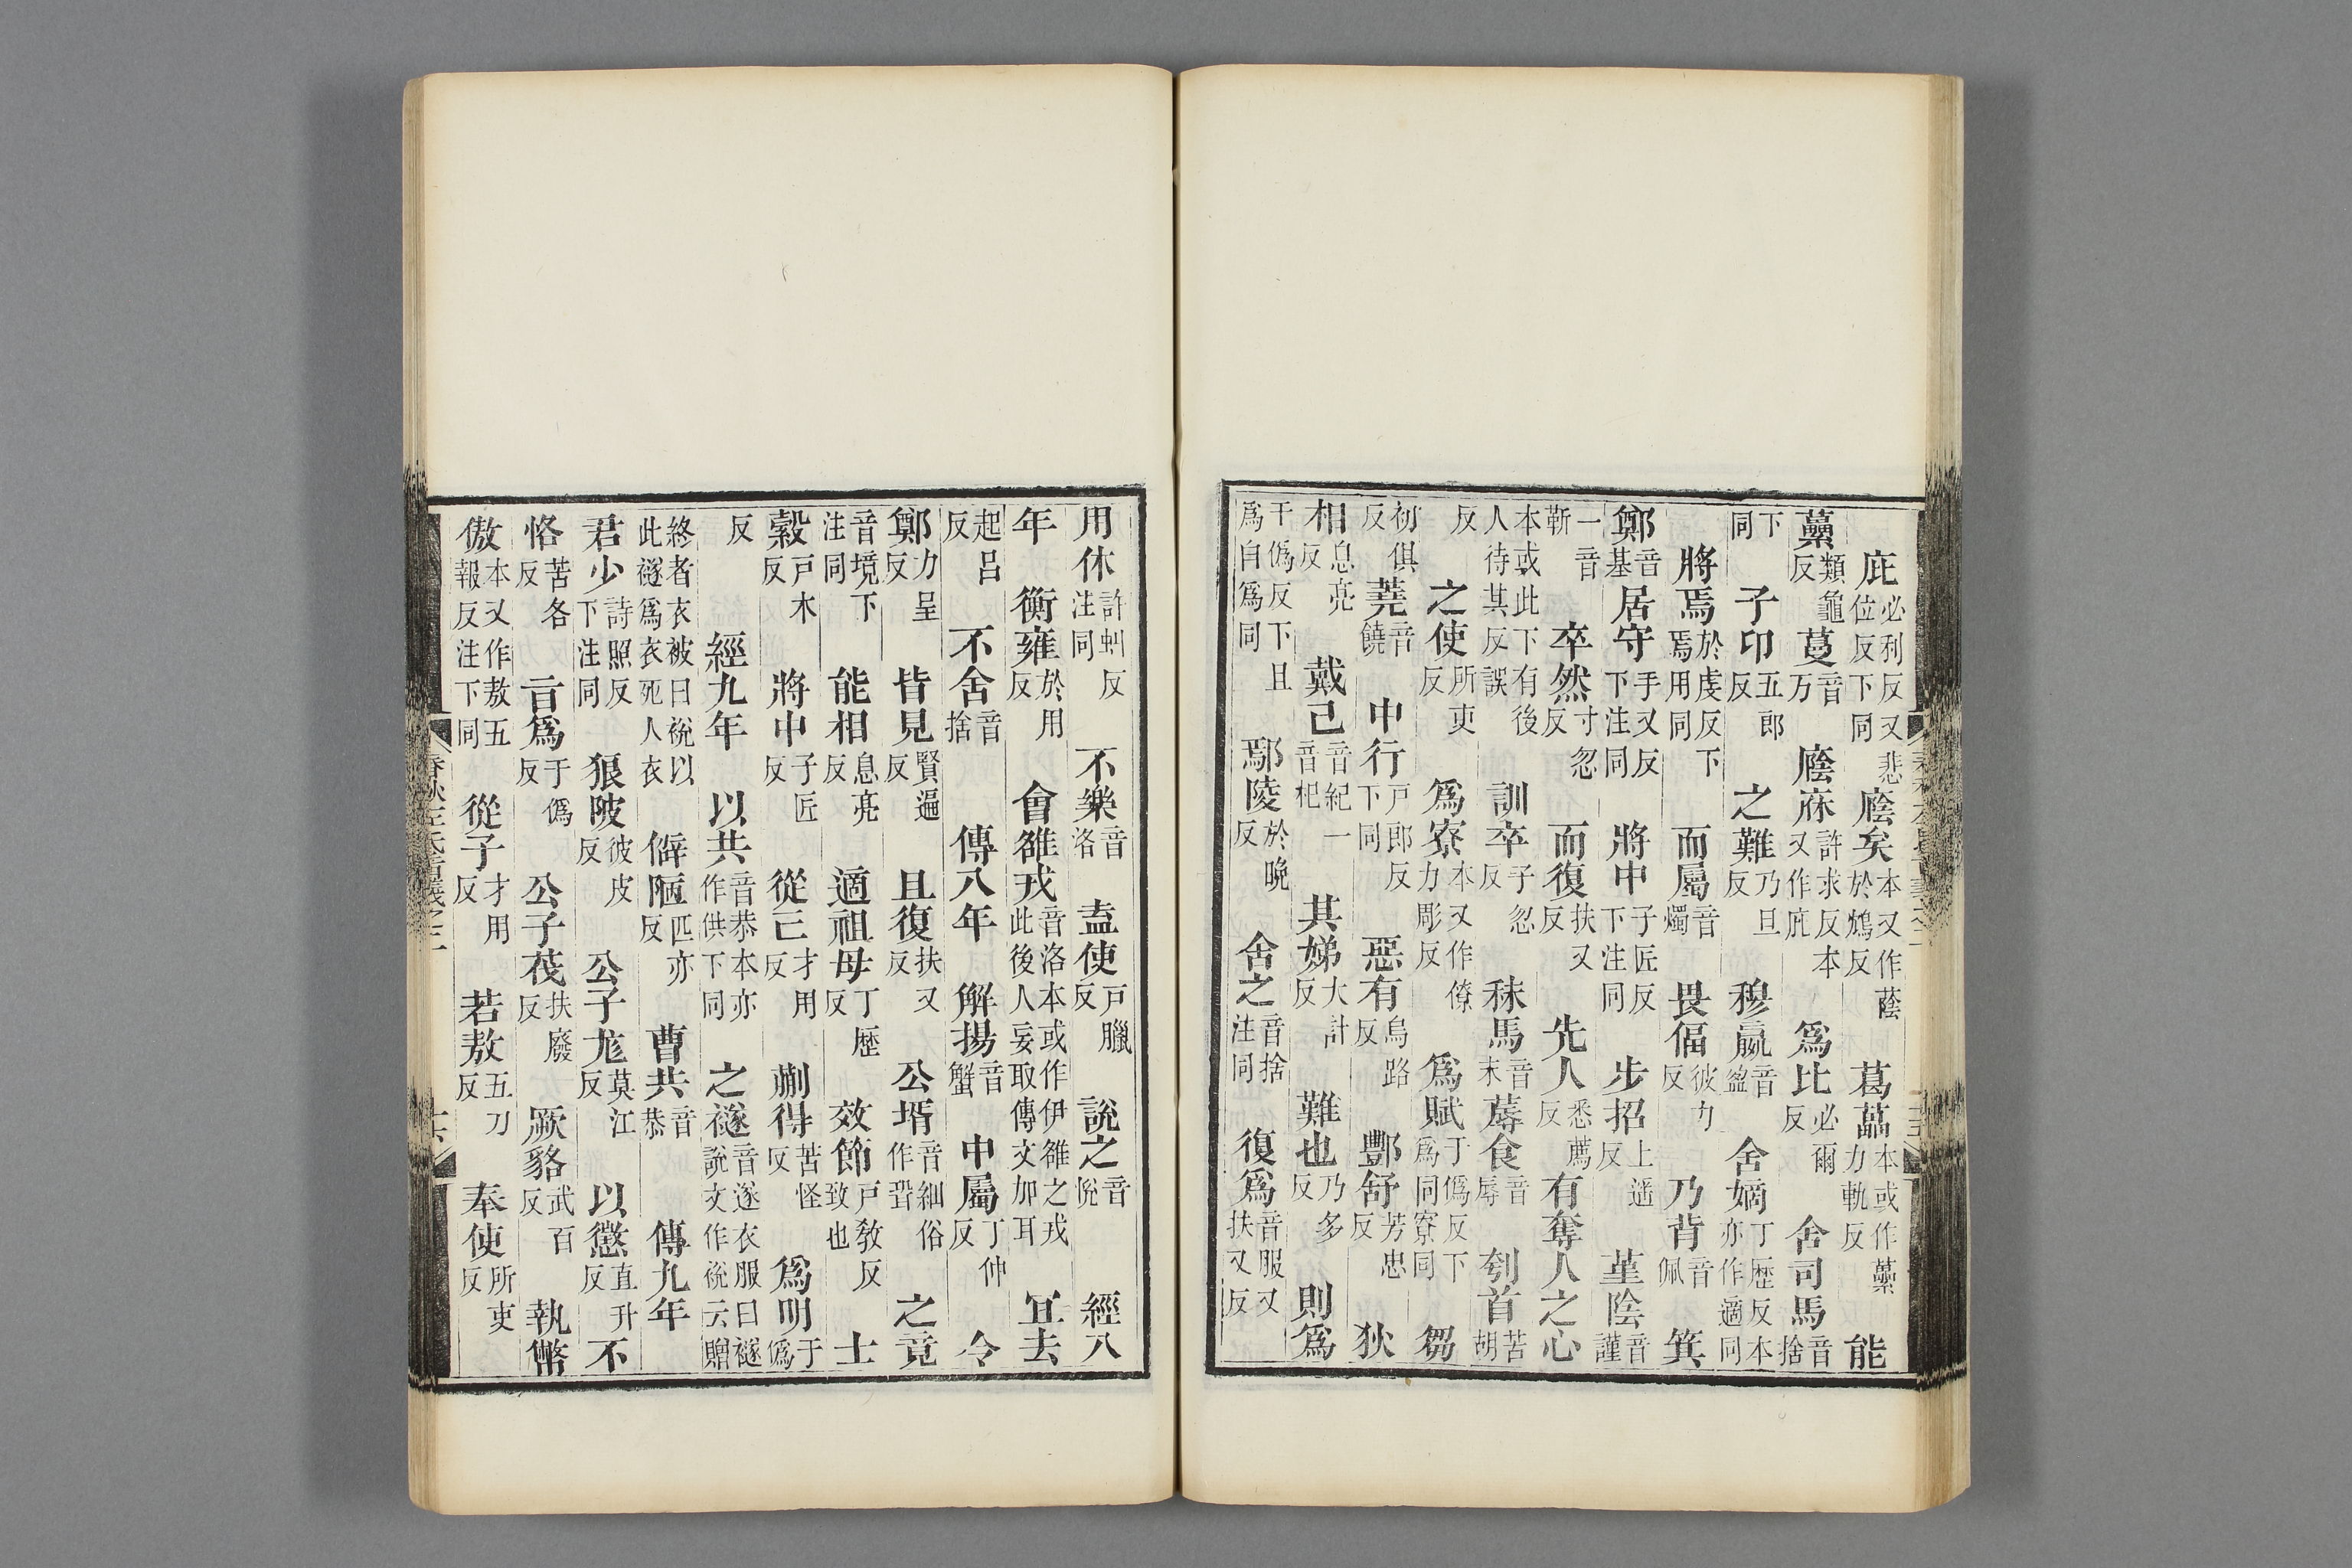 庇必利反又悲位反下同 廕矣本又作蔭於鴆反 葛藟本或作虆力軌反 能
虆類龜反 蔓音万 廕庥許求反本又作庇 爲比必爾反 舍司馬音捨
下同 子印五郎反 之難乃旦反 穆嬴音盈 舍嫡丁歷反本亦作適同
將焉於虔反下焉用同 而屬音燭 畏偪彼力反 乃背音佩 箕
鄭音基 居守手又反下注同 將中子匠反下注同 步招上遥反 堇陰音謹
一音靳 卒然寸忽反 而復扶又反 先人悉薦反 有奪人之心
本或此下有後人待其反誤 訓卒子忽反 秣馬音末 蓐食音辱 刳首苦胡
反 之使所吏反 爲寮本又作僚力彫反 爲賦于僞反下爲同寮同 芻
初俱反 蕘音饒 中行戸郎反下同 惡有烏路反 酆舒芳忠反 狄
相息亮反 戴己音紀一音杞 其娣大計反 難也乃多反 則爲
于僞反下且爲自爲同 鄢陵於晚反 舍之音捨注同 復爲音服又扶又反
用休許虯反注同 不樂音洛 盍使戸臘反 說之音悅 經八
年 衡雍於用反 會雒戎音洛本或作伊雒之戎此後人妄取傳文加耳 冝去
起呂反 不舍音捨 傳八年 解揚音蟹 中屬丁仲反 令
鄭力呈反 皆見賢遍反 且復扶又反 公壻音細俗作聟 之竟
音境下注同 能相息亮反 適祖母丁歷反 效節戸敎反致也 士
縠戸木反 將中子匠反 從己才用反 蒯得苦怪反 爲明于僞
反 經九年 以共音恭本亦作供下同 之襚音遂衣服曰襚說文作祱云贈
終者衣被曰祱以此襚爲衣死人衣 僻陋匹亦反 曹共音恭 傳九年
君少詩照反下注同 狼陂彼皮反 公子尨莫江反 以懲直升反 不
恪苦各反 言爲于僞反 公子茷扶廢反 厥貉武百反 執幣
傲本又作敖五報反注下同 從子才用反 若敖五刀反 奉使所吏反
春秋左氏音義之三 十六